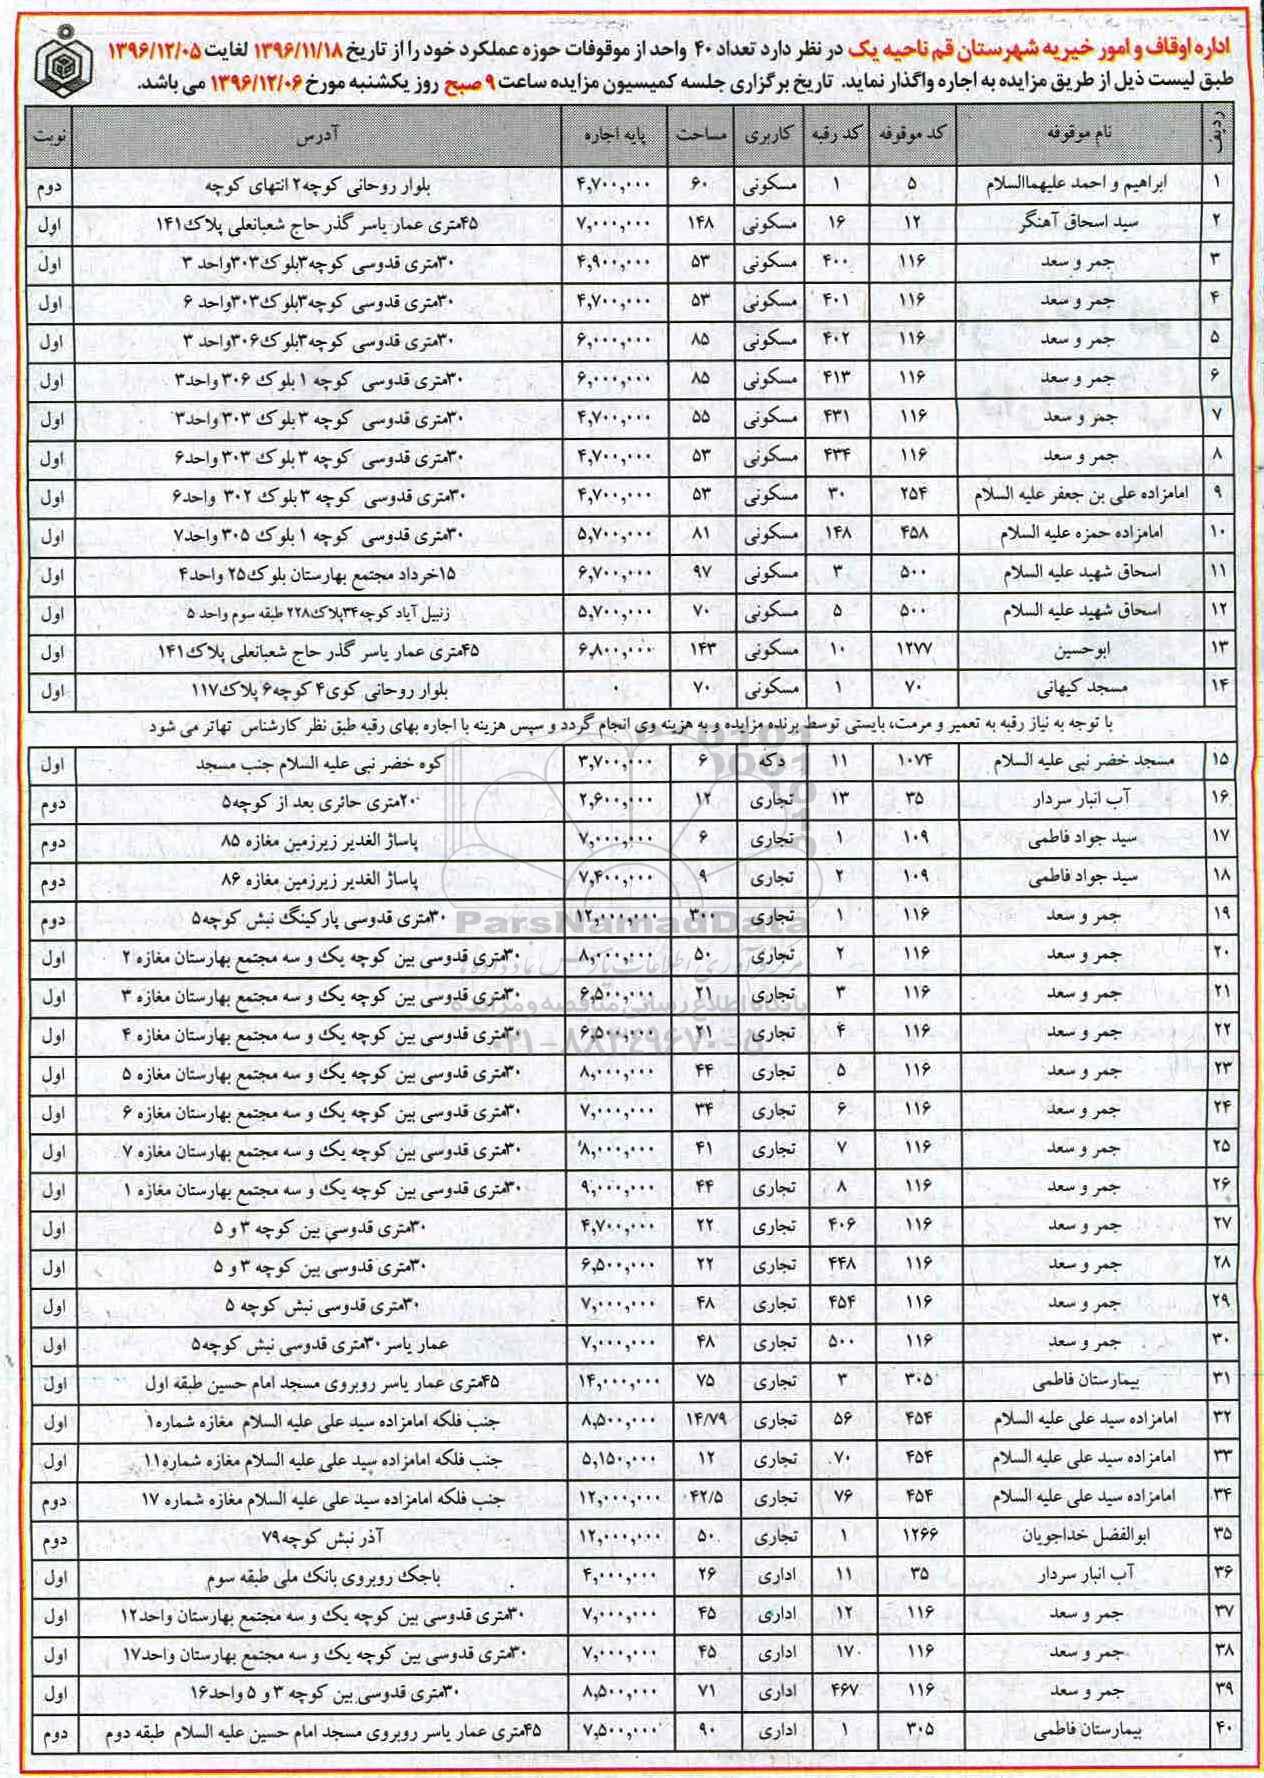 اداره اوقاف و امور خیریه شهرستان قم ناحیه یک در نظر دارد تعداد ۴۰ واحد از موقوفات حوزه عملکرد خود را از تاریخ ۱۳۹۶/۱۱/۱۸ لغایت ۱۳۹۶/۱۲/۰۵
طبق لیست ذیل از طریق مزایده به اجاره واگذار نماید. تاریخ برگزاری جلسه کمیسیون مزایده ساعت ۹ صبح روز یکشنبه مورخ ۱۳۹۶/۱۲/۰۶ می باشد.
ردیف نام موقوفه کد موقوفه کد رقبه کاربری مساحت پایه اجاره آدرس نوبت
۱ ابراهیم و احمد علیهماالسلام ۵ ۱ مسکونی ۶۰ ۴,۷۰۰,۰۰۰ بلوار روحانی کوچه۲ انتهای کوچه دوم
۲ سید اسحاق آهنگر ۱۲ ۱۶ مسکونی ۱۴۸ ۷,۰۰۰,۰۰۰ ۴۵متری عمار یاسر گذر حاج شعبانعلی پلاک۱۴۱ اول
۳ جمر و سعد ۱۱۶ ۴۰۰ مسکونی ۵۳ ۴,۹۰۰,۰۰۰ ۳۰متری قدوسی کوچه۳بلوک۳۰۳واحد ۳ اول
۴ جمر و سعد ۱۱۶ ۴۰۱ مسکونی ۵۳ ۴,۷۰۰,۰۰۰ ۳۰متری قدوسی کوچه۳بلوک۳۰۳واحد ۶ اول
۵ جمر و سعد ۱۱۶ ۴۰۲ مسکونی ۸۵ ۶,۰۰۰,۰۰۰ ۳۰متری قدوسی کوچه۳بلوک۳۰۶واحد ۳ اول
۶ جمر و سعد ۱۱۶ ۴۱۳ مسکونی ۸۵ ۶,۰۰۰,۰۰۰ ۳۰متری قدوسی کوچه ۱ بلوک ۳۰۶ واحد۳ اول
۷ جمر و سعد ۱۱۶ ۴۳۱ مسکونی ۵۵ ۴,۷۰۰,۰۰۰ ۳۰متری قدوسی کوچه ۳ بلوک ۳۰۳ واحد۳ اول
۸ جمر و سعد ۱۱۶ ۴۳۴ مسکونی ۵۳ ۴,۷۰۰,۰۰۰ ۳۰متری قدوسی کوچه ۳ بلوک ۳۰۳ واحد۶ اول
۹ امامزاده علی بن جعفر علیه السلام ۲۵۴ ۳۰ مسکونی ۵۳ ۴,۷۰۰,۰۰۰ ۳۰متری قدوسی کوچه ۳ بلوک ۳۰۲ واحد۶ اول
۱۰ امامزاده حمزه علیه السلام ۴۵۸ ۱۴۸ مسکونی ۸۱ ۵,۷۰۰,۰۰۰ ۳۰متری قدوسی کوچه ۱ بلوک ۳۰۵ واحد۷ اول
۱۱ اسحاق شهید علیه السلام ۵۰۰ ۳ مسکونی ۹۷ ۶,۷۰۰,۰۰۰ ۱۵خرداد مجتمع بهارستان بلوک۲۵ واحد۴ اول
۱۲ اسحاق شهید علیه السلام ۵۰۰ ۵ مسکونی ۷۰ ۵,۷۰۰,۰۰۰ زنبیل آباد کوچه۳۴پلاک۲۲۸ طبقه سوم واحد ۵ اول
۱۳ ابوحسین ۱۲۷۷ ۱۰ مسکونی ۱۴۳ ۶,۸۰۰,۰۰۰ ۴۵متری عمار یاسر گذر حاج شعبانعلی پلاک۱۴۱ اول
۱۴ مسجد کیهانی ۷۰ ۱ مسکونی ۷۰ ۰ بلوار روحانی کوی۴ کوچه۶ پلاک۱۱۷ اول
با توجه به نیاز رقبه به تعمیر و مرمت، بایستی توسط برنده مزایده و به هزینه وی انجام گردد و سپس هزینه با اجاره بهای رقبه طبق نظر کارشناس تهاتر می شود
۱۵ مسجد خضر نبی علیه السلام ۱۰۷۴ ۱۱ دکه ۶ ۳,۷۰۰,۰۰۰ کوه خضر نبی علیه السلام جنب مسجد اول
۱۶ آب انبار سردار ۳۵ ۱۳ تجاری ۱۲ ۲,۶۰۰,۰۰۰ ۲۰متری حائری بعد از کوچه۵ دوم
۱۷ سید جواد فاطمی ۱۰۹ ۱ تجاری ۶ ۷,۰۰۰,۰۰۰ پاساژ الغدیر زیرزمین مغازه ۸۵ دوم
۱۸ سید جواد فاطمی ۱۰۹ ۲ تجاری ۹ ۷,۴۰۰,۰۰۰ پاساژ الغدیر زیرزمین مغازه ۸۶ دوم
۱۹ جمر و سعد ۱۱۶ ۱ تجاری ۳۰۰ ۱۲,۰۰۰,۰۰۰ ۳۰متری قدوسی پارکینگ نبش کوچه۵ دوم
۲۰ جمر و سعد ۱۱۶ ۲ تجاری ۵۰ ۸,۰۰۰,۰۰۰ ۳۰متری قدوسی بین کوچه یک و سه مجتمع بهارستان مغازه ۲ اول
۲۱ جمر و سعد ۱۱۶ ۳ تجاری ۲۱ ۶,۵۰۰,۰۰۰ ۳۰متری قدوسی بین کوچه یک و سه مجتمع بهارستان مغازه ۳ اول
۲۲ جمر و سعد ۱۱۶ ۴ تجاری ۲۱ ۶,۵۰۰,۰۰۰ ۳۰متری قدوسی بین کوچه یک و سه مجتمع بهارستان مغازه ۴ اول
۲۳ جمر و سعد ۱۱۶ ۵ تجاری ۴۴ ۸,۰۰۰,۰۰۰ ۳۰متری قدوسی بین کوچه یک و سه مجتمع بهارستان مغازه ۵ اول
۲۴ جمر و سعد ۱۱۶ ۶ تجاری ۳۴ ۷,۰۰۰,۰۰۰ ۳۰متری قدوسی بین کوچه یک و سه مجتمع بهارستان مغازه ۶ اول
۲۵ جمر و سعد ۱۱۶ ۷ تجاری ۴۱ ۸,۰۰۰,۰۰۰ ۳۰متری قدوسی بین کوچه یک و سه مجتمع بهارستان مغازه ۷ اول
۲۶ جمر و سعد ۱۱۶ ۸ تجاری ۴۴ ۹,۰۰۰,۰۰۰ ۳۰متری قدوسی بین کوچه یک و سه مجتمع بهارستان مغازه ۱ اول
۲۷ جمر و سعد ۱۱۶ ۴۰۶ تجاری ۲۲ ۴,۷۰۰,۰۰۰ ۳۰متری قدوسی بین کوچه ۳ و ۵ اول
۲۸ جمر و سعد ۱۱۶ ۴۴۸ تجاری ۲۲ ۶,۵۰۰,۰۰۰ ۳۰متری قدوسی بین کوچه ۳ و ۵ اول
۲۹ جمر و سعد ۱۱۶ ۴۵۴ تجاری ۴۸ ۷,۰۰۰,۰۰۰ ۳۰متری قدوسی نبش کوچه ۵ اول
۳۰ جمر و سعد ۱۱۶ ۵۰۰ تجاری ۴۸ ۷,۰۰۰,۰۰۰ عمار یاسر۳۰متری قدوسی نبش کوچه۵ اول
۳۱ بیمارستان فاطمی ۳۰۵ ۳ تجاری ۷۵ ۱۴,۰۰۰,۰۰۰ ۴۵متری عمار یاسر روبروی مسجد امام حسین طبقه اول اول
۳۲ امامزاده سید علی علیه السلام ۴۵۴ ۵۶ تجاری ۱۴/۷۹ ۸,۵۰۰,۰۰۰ جنب فلکه امامزاده سید علی علیه السلام مغازه شماره۱ اول
۳۳ امامزاده سید علی علیه السلام ۴۵۴ ۷۰ تجاری ۱۲ ۵,۱۵۰,۰۰۰ جنب فلکه امامزاده سید علی علیه السلام مغازه شماره۱۱ اول
۳۴ امامزاده سید علی علیه السلام ۴۵۴ ۷۶ تجاری ۴۲/۵ ۱۲,۰۰۰,۰۰۰ جنب فلکه امامزاده سید علی علیه السلام مغازه شماره ۱۷ دوم
۳۵ ابوالفضل خداجویان ۱۲۶۶ ۱ تجاری ۵۰ ۱۲,۰۰۰,۰۰۰ آذر نبش کوچه۷۹ دوم
۳۶ آب انبار سردار ۳۵ ۱۱ اداری ۲۶ ۴,۰۰۰,۰۰۰ باجک روبروی بانک ملی طبقه سوم اول
۳۷ جمر و سعد ۱۱۶ ۱۲ اداری ۴۵ ۷,۰۰۰,۰۰۰ ۳۰متری قدوسی بین کوچه یک و سه مجتمع بهارستان واحد۱۲ اول
۳۸ جمر و سعد ۱۱۶ ۱۷ اداری ۴۵ ۷,۰۰۰,۰۰۰ ۳۰متری قدوسی بین کوچه یک و سه مجتمع بهارستان واحد۱۷ اول
۳۹ جمر و سعد ۱۱۶ ۴۶۷ اداری ۷۱ ۸,۵۰۰,۰۰۰ ۳۰متری قدوسی بین کوچه ۳ و ۵ واحد۱۶ اول
۴۰ بیمارستان فاطمی ۳۰۵ ۱ اداری ۹۰ ۷,۵۰۰,۰۰۰ ۴۵متری عمار یاسر روبروی مسجد امام حسین علیه السلام طبقه دوم دوم
ParsNamadData
پایگاه اطلاع رسانی مناقصه و مزایده
۰۲۱-۸۸۳۴۹۶۷۰-۵